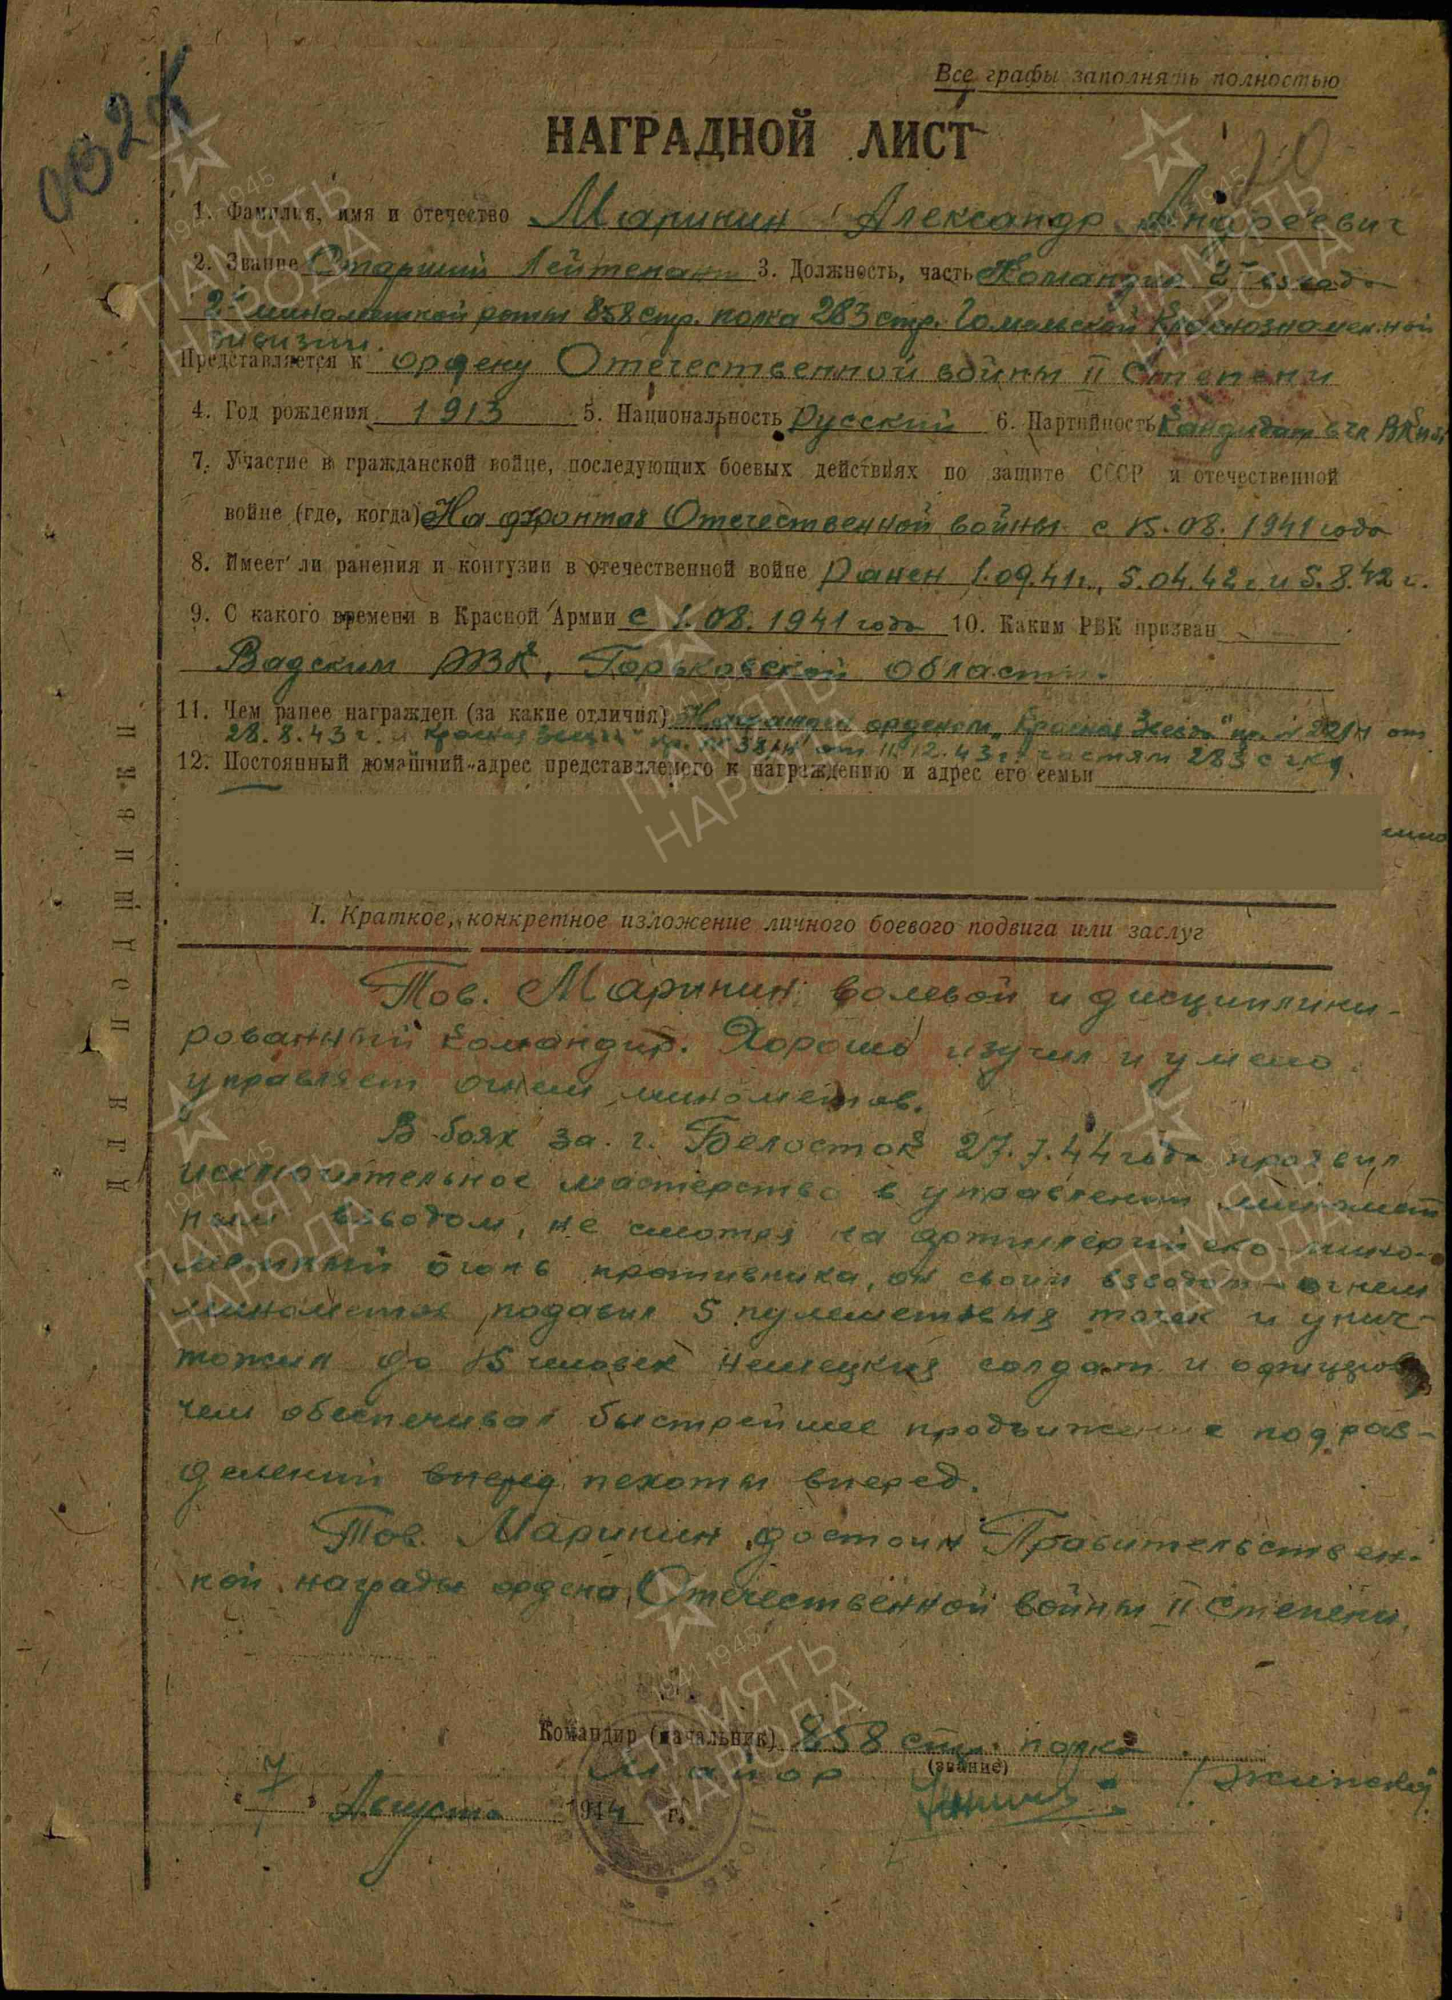 Все графы заполнять полностью
002
20
НАГРАДНОЙ ЛИСТ
1. Фамилия, имя и отчество Маринин Александр Андреевич
2. Звание Старший Лейтенант 3. Должность, часть Командир 2го взвода
2й минометной роты 858 стр. полка 283 стр. Гомельской Краснознаменной
дивизии.
Представляется к ордену Отечественной войны II Степени
4. Год рождения 1913 5. Национальность Русский 6. Партийность Кандидат в чл ВКП(б)
7. Участие в гражданской войне, последующих боевых действиях по защите СССР и отечественной
войне (где, когда) На фронтах Отечественной войны с 15.08.1941 года
8. Имеет ли ранения и контузии в отечественной войне Ранен 1.09.41г., 5.04.42г. и 5.8.42г.
9. С какого времени в Красной Армии с 1.08.1941 года 10. Каким РВК призван
Вадским РВК, Горьковской области.
11. Чем ранее награжден (за какие отличия) Награжден орденом „Красная Звезда" пр. № 221н от
28.8.43г. и „Красная Звезда" пр. № 381н от 11.12.43г. частям 283 с
12. Постоянный домашний адрес представляемого к награждению и адрес его семьи
I. Краткое, конкретное изложение личного боевого подвига или заслуг
Тов. Маринин волевой и дисциплини-
рованный командир. Хорошо изучил и умело
управляет огнем минометов.
В боях за г. Белосток 27.7.44 года проявил
исключительное мастерство в управлении миномет
ным взводом, не смотря на артиллерийско-мино-
метный огонь противника, он своим взводом - огнем
минометов подавил 5 пулеметных точек и унич-
тожил до 15 человек немецких солдат и офицеров
чем обеспечивал быстрейшее продвижение подраз-
делений вперед пехоты вперед.
Тов. Маринин достоин Правительствен-
ной награды ордена Отечественной войны II степени.
Командир (начальник) 858 стр. полка
(звание)
Майор
„7" Августа 1944 г.
ДЛЯ ПОДШИВКИ
ПАМЯТЬ НАРОДА
1941 1945